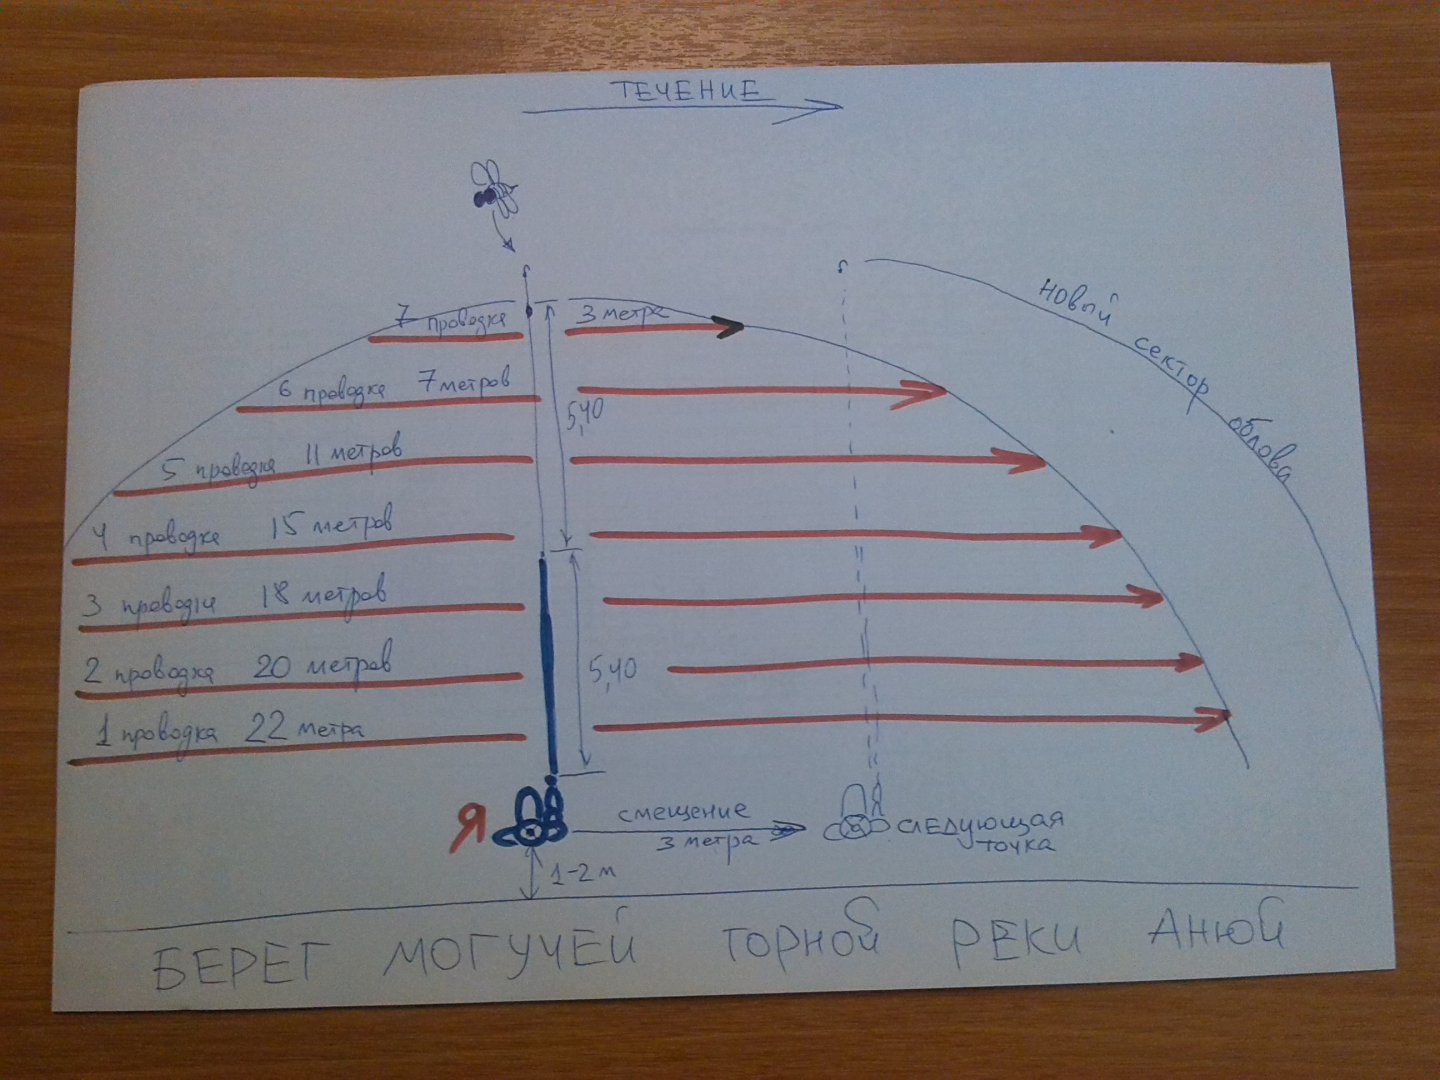 ТЕЧЕНИЕ
7 проводка 3 метра
6 проводка 7 метров
5,40
5 проводка 11 метров
4 проводка 15 метров
3 проводка 18 метров
2 проводка 20 метров
5,40
1 проводка 22 метра
новый сектор облова
Я
смещение
3 метра
СЛЕДУЮЩАЯ
точка
1-2 м
БЕРЕГ МОГУЧЕЙ ГОРНОЙ РЕКИ АНЮЙ